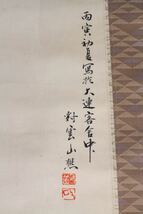 丙寅初夏寫於大連客舍中
對雲山樵